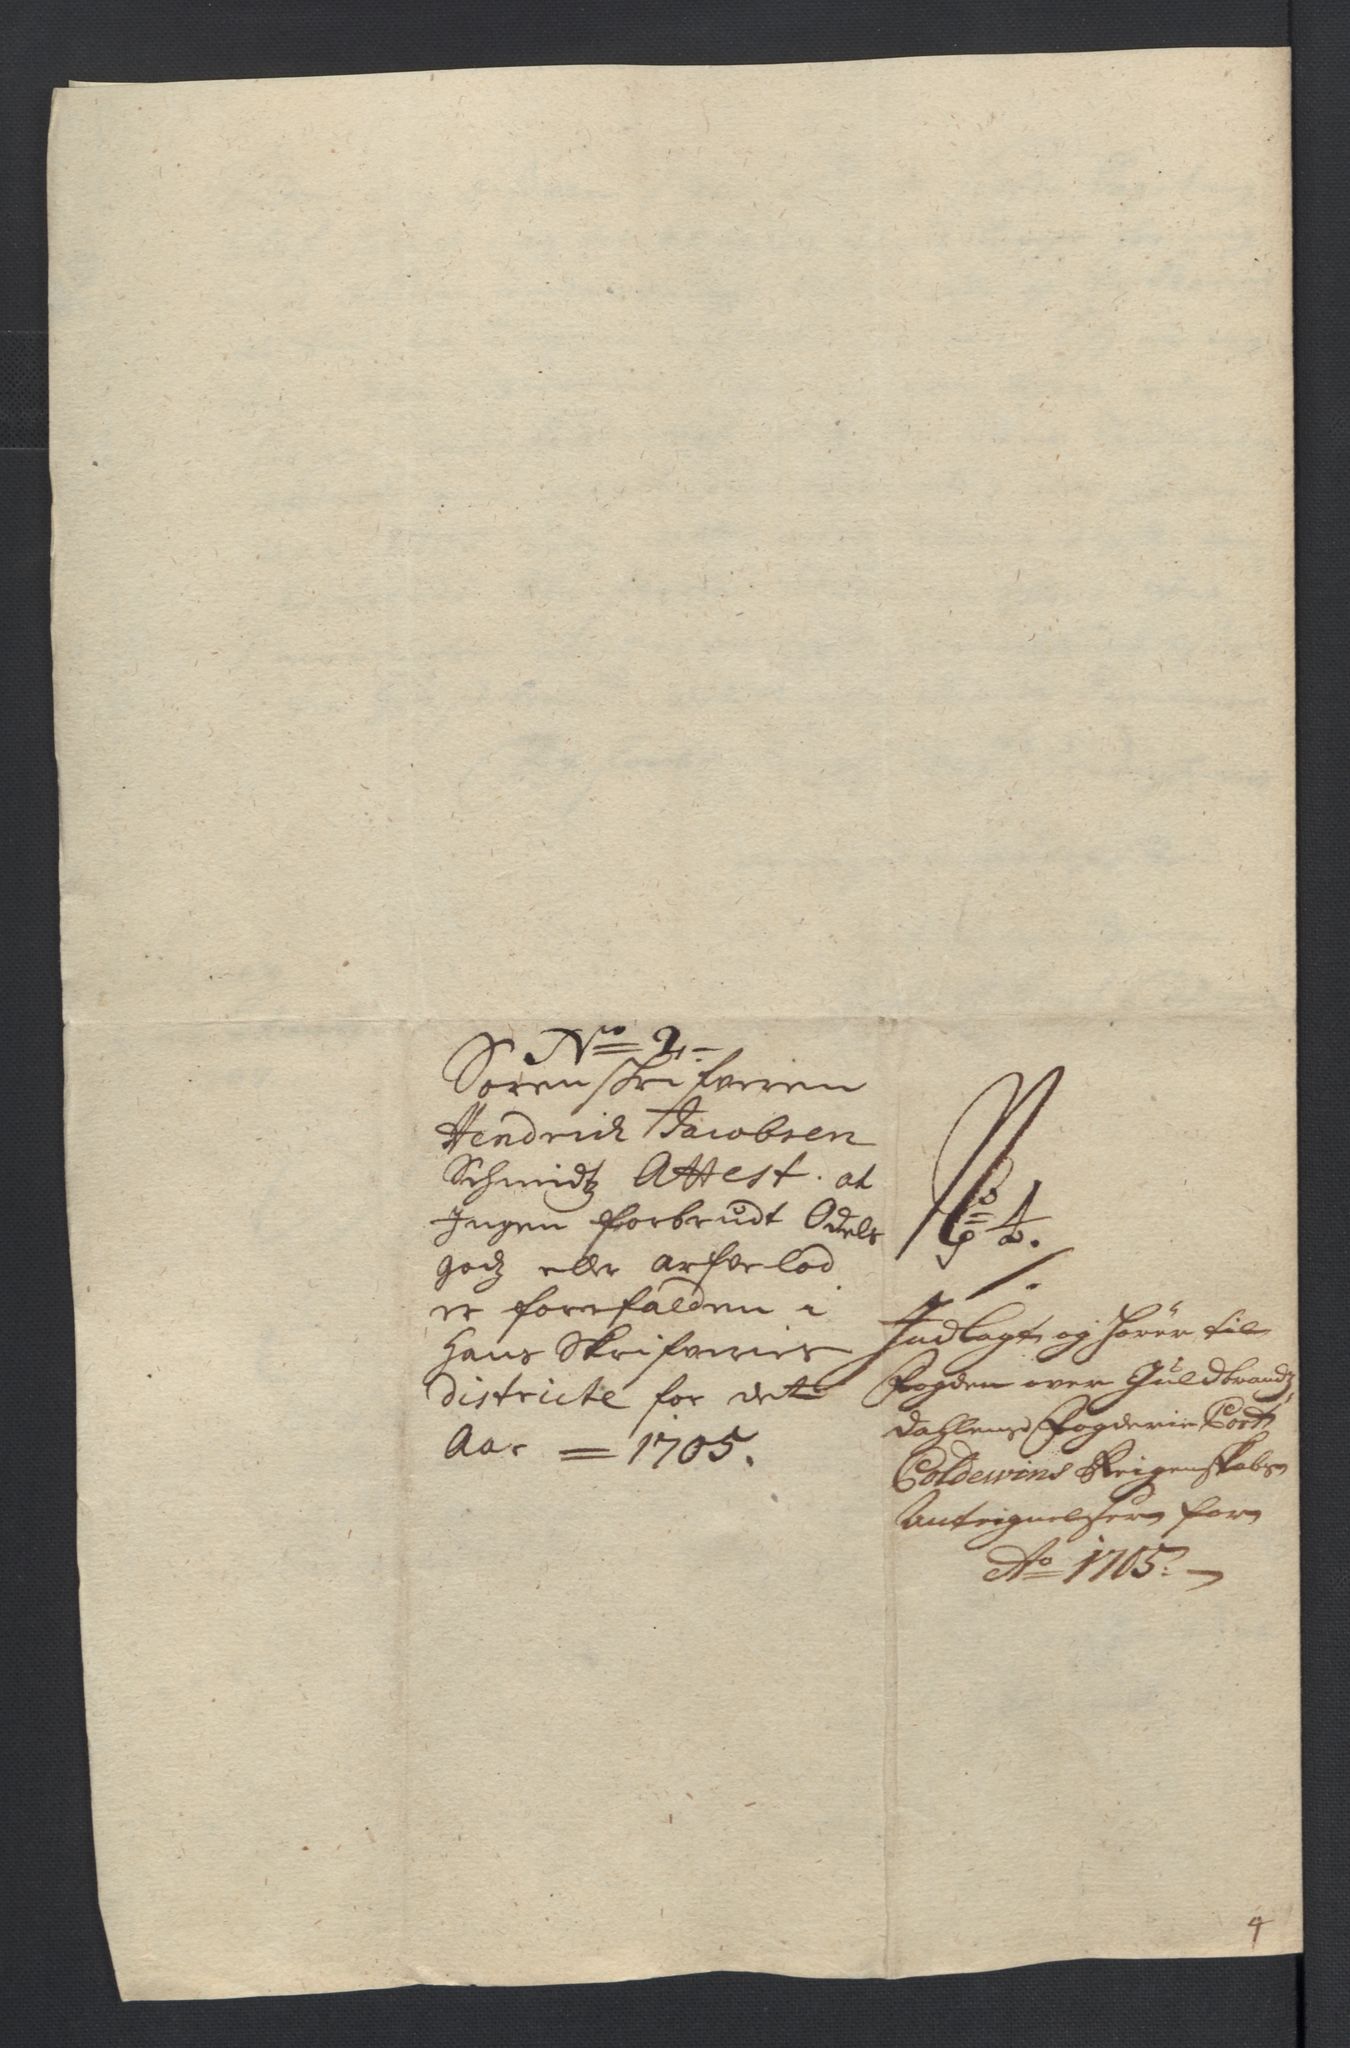 No 2.
Sorenschrifveren
Hendrich Jacobsen
Schmidtz Attest. at
Ingen forbrudt Odels
godz eller arfvelod
er forefalden i
Hans Skrifveries
Districte for dette
Aar = 1705.
No 4.
Indlagt og hører til
Fogden over Guldbrandz
dahlens Fogderie Cort
Coldewins Reigenskabs
Anteignelser for
Ao 1705.
4